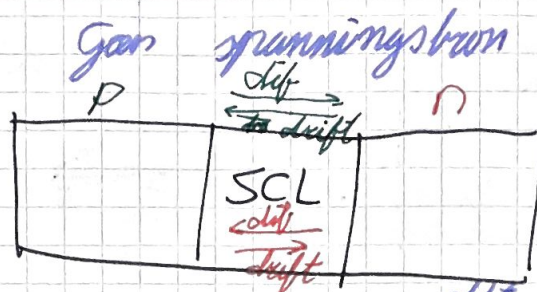 Geen spanningsbron
dif
P n
drift
SCL
dif
drift